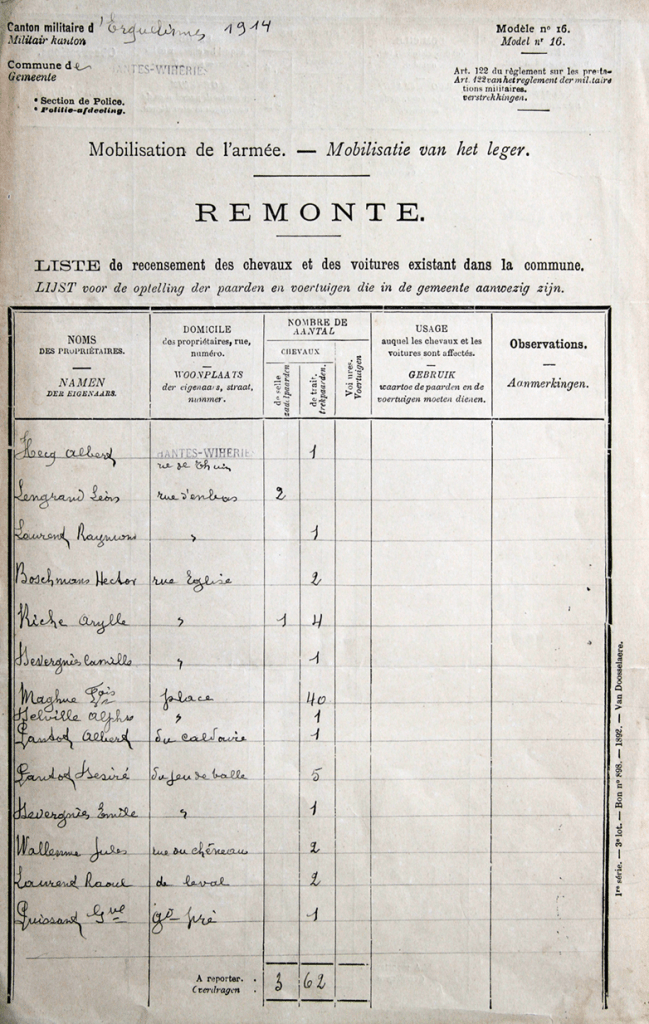 Canton militaire d'Erquelinnes 1914
Militair kanton
Commune de HANTES-WIHERIES
Gemeente
* Section de Police.
* Politie-afdeeling.
Modèle nº 16.
Model nr 16.
Art. 122 du règlement sur les presta-
Art. 122 van het reglement der militaire
tions militaires.
verstrekkingen.
Mobilisation de l'armée. — Mobilisatie van het leger.
REMONTE.
LISTE de recensement des chevaux et des voitures existant dans la commune.
LIJST voor de optelling der paarden en voertuigen die in de gemeente aanwezig zijn.
NOMS DES PROPRIÉTAIRES. NAMEN DER EIGENAARS.
DOMICILE des propriétaires, rue, numéro. WOONPLAATS der eigenaars, straat, nummer.
NOMBRE DE AANTAL
CHEVAUX
de selle zadelpaarden
de trait. trekpaarden.
Voitures. Voertuigen
USAGE auquel les chevaux et les voitures sont affectés. GEBRUIK waartoe de paarden en de voertuigen moeten dienen.
Observations. Aanmerkingen.
Hecq Albert HANTES-WIHERIE rue de Thuin 1
Lengrand Léon rue d'enbas 2
Laurent Raymond " 1
Boschmans Hector rue Eglise 2
Riche Arylle " 1 4
Devergnies Camille " 1
Maghue Fçois place 40
Delville Alph " 1
Lantot Albert du calvaire 1
Lantot Desiré du jeu de balle 5
Devergnies Emile " 1
Wallemme Jules rue du chêneau 2
Laurent Raoul de laval 2
Puissant Gve gd pré 1
A reporter. Overdragen : 3 62
1re série. — 3e lot. — Bon nº 898. — 1892. — Van Doosselaere.